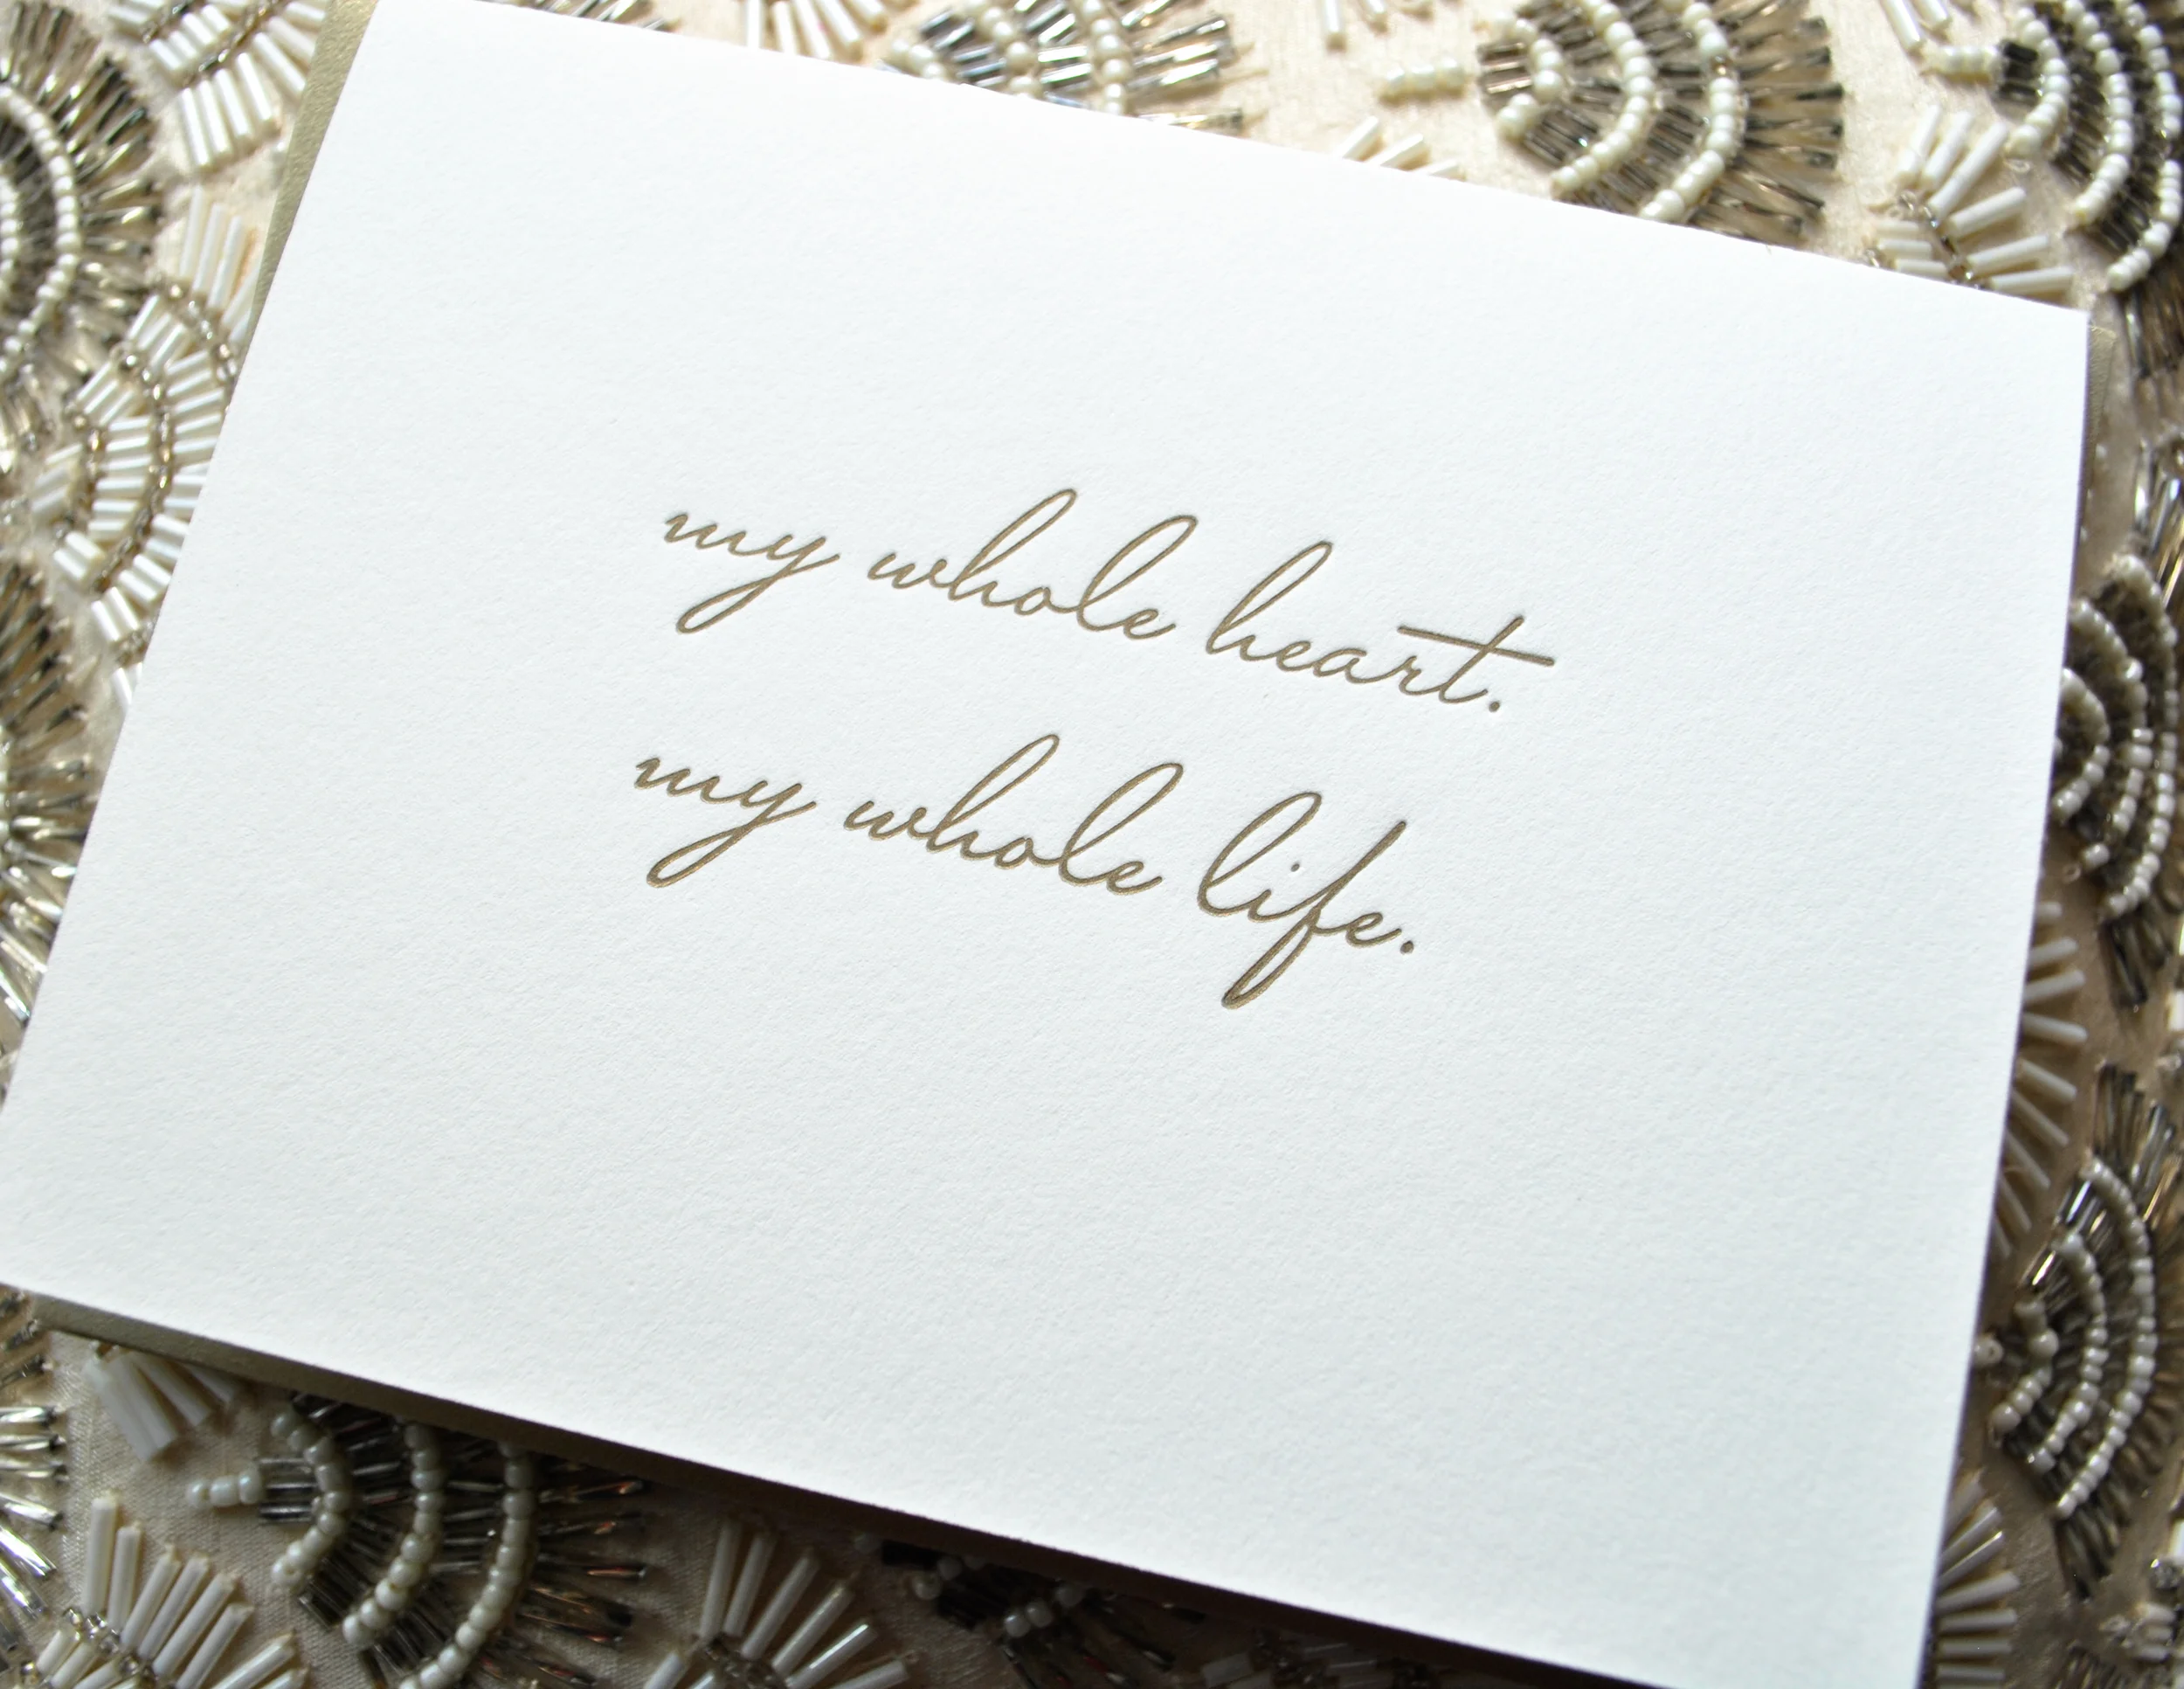 my whole heart.
my whole life.